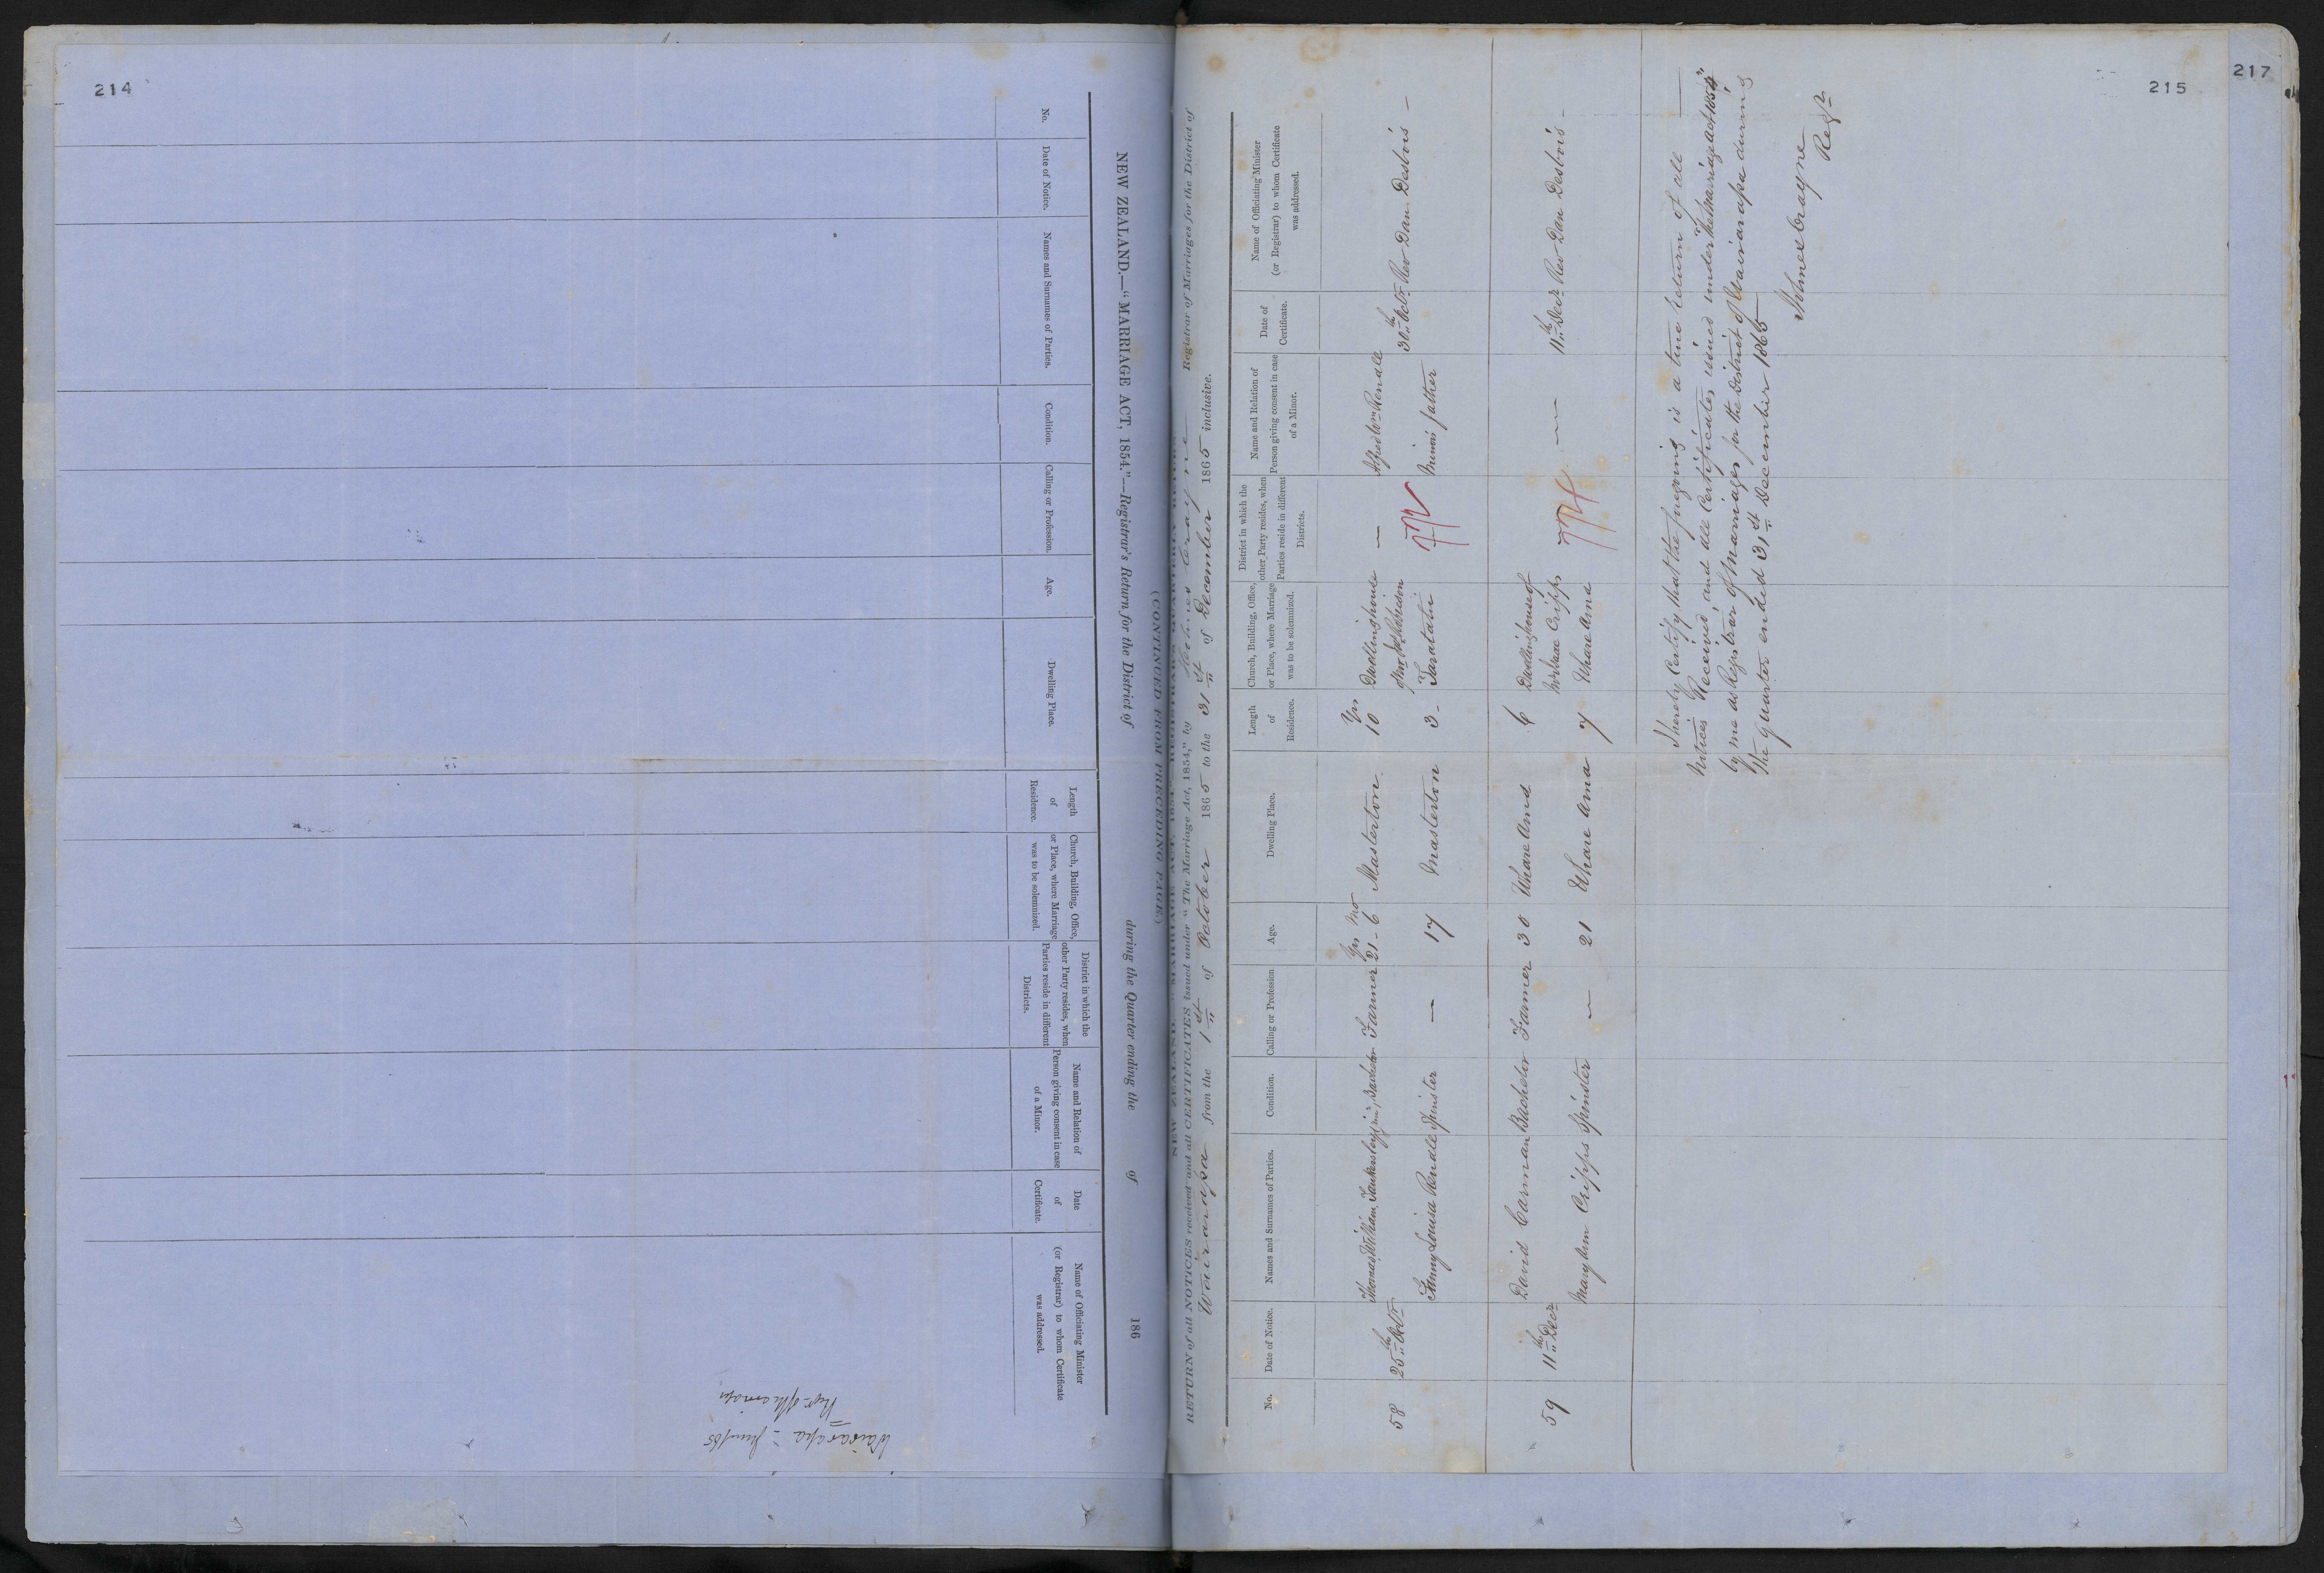 214
NEW ZEALAND.—"MARRIAGE ACT, 1854."—Registrar's Return for the District of during the Quarter ending the of 186
(CONTINUED FROM PRECEDING PAGE.)
No.
Date of Notice.
Names and Surnames of Parties.
Condition.
Calling or Profession.
Age.
Dwelling Place.
Length
of
Residence.
Church, Building, Office,
or Place, where Marriage
was to be solemnized.
District in which the
other Party resides, when
Parties reside in different
Districts.
Name and Relation of
Person giving consent in case
of a Minor.
Date
of
Certificate.
Name of Officiating Minister
(or Registrar) to whom Certificate
was addressed.
Wairarapa
Regr of Marriages
215
217
RETURN of all NOTICES received and all CERTIFICATES issued under "The Marriage Act, 1854," by Registrar of Marriages for the District of
Wairarapa from the 1st of October 1865 to the 31st of December 1865 inclusive.
No.
Date of Notice.
Names and Surnames of Parties.
Condition.
Calling or Profession
Age.
Dwelling Place.
Length
of
Residence.
Church, Building, Office,
or Place, where Marriage
was to be solemnized.
District in which the
other Party resides, when
Parties reside in different
Districts.
Name and Relation of
Person giving consent in case
of a Minor.
Date of
Certificate.
Name of Officiating Minister
(or Registrar) to whom Certificate
was addressed.
58 25th Octr
Thomas William Bachelor Farmer Yrs Mo 21-6 Masterton Yrs 10 Dwelling house — Alfred Wm Rendle 30th Octr Rev Dan Desbois —
Fanny Louisa Rendle Spinster — 17 Masterton 3 - Taratahi Minors father
59 11th Decr
David Carman Bachelor Farmer 30 Whare Ama 6 Dwelling house of — 11th Decr Rev Dan Desbois —
Cripps
Mary Ann Cripps Spinster — 21 Whare Ama 7 Whare Ama
I hereby Certify that the foregoing is a true return of all
Notices Received and all Certificates issued under "the Marriage Act 1854"
by me as Registrar of Marriages for the District of Wairarapa during
the Quarter ended 31st December 1865
Regr